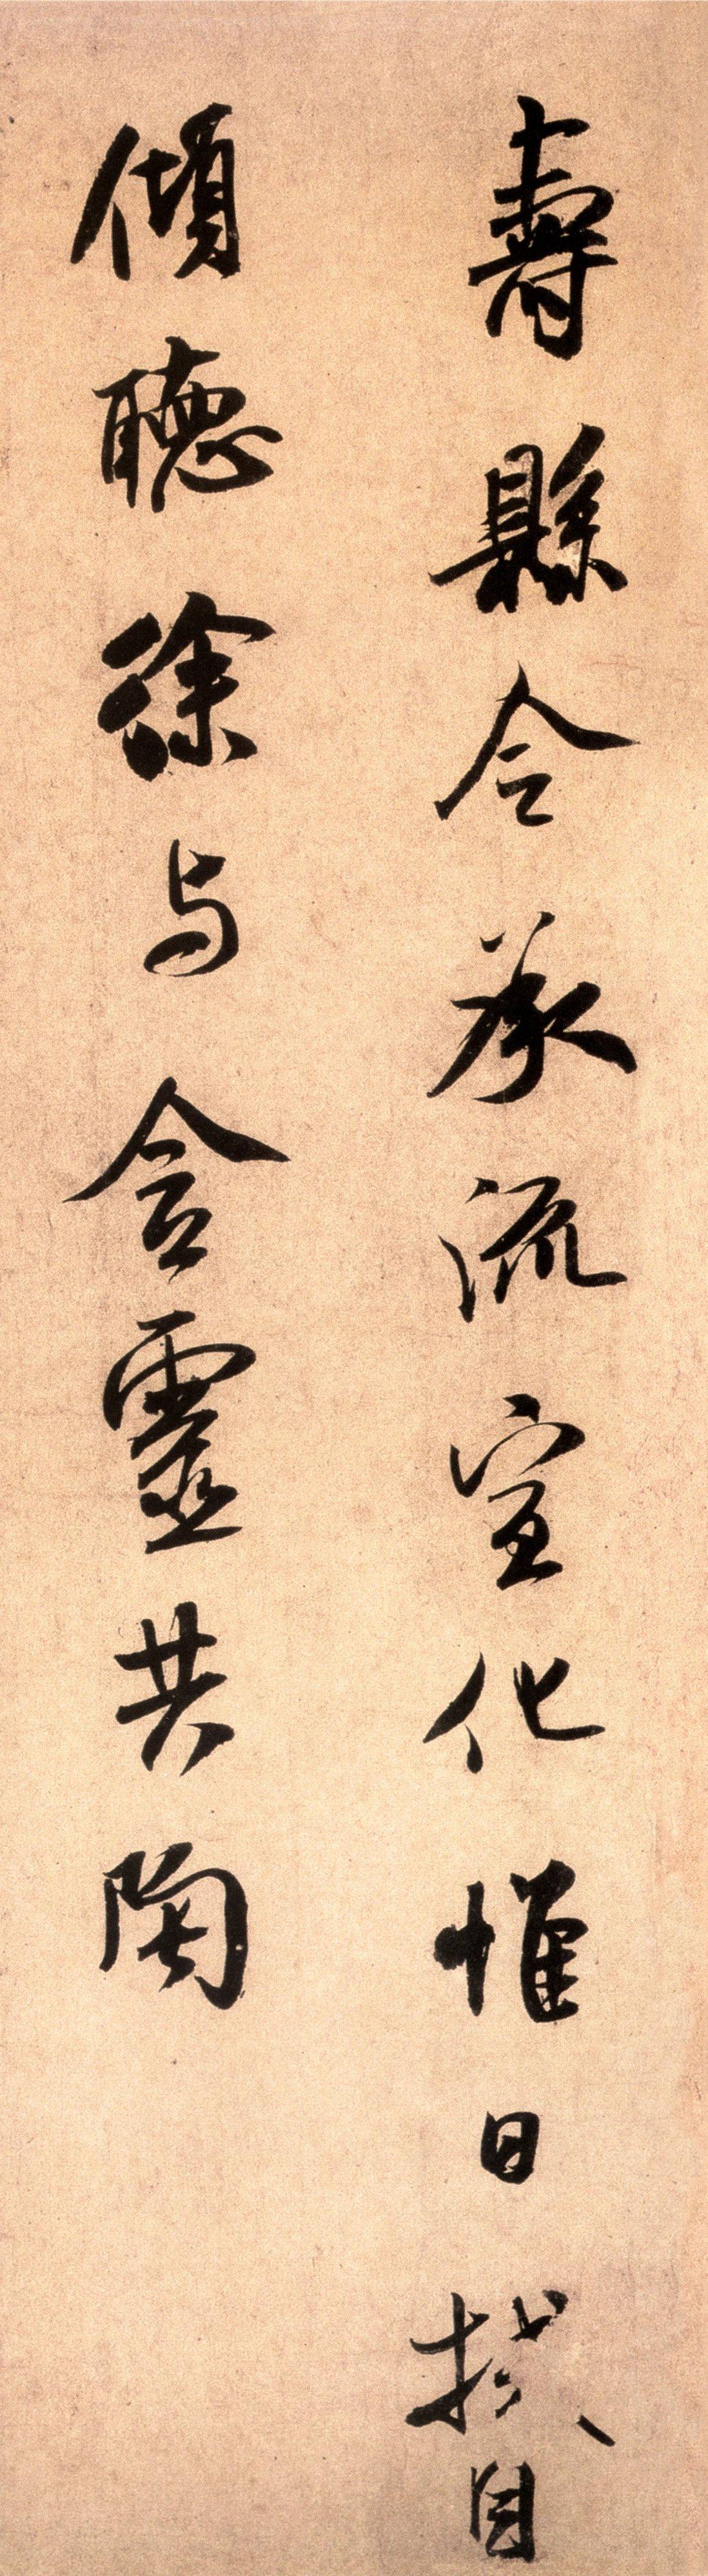 壽縣令承流宣化惟日拭目
傾聽徐与含靈共陶